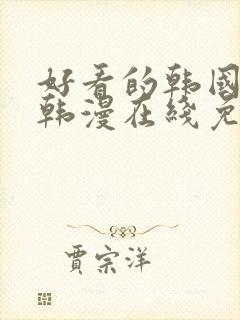 好看的韩國
韩漫在綫免
贾宗洋